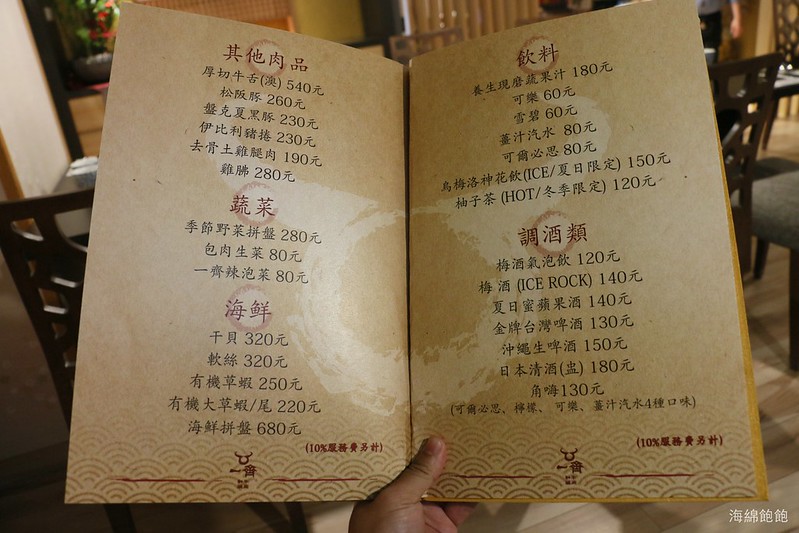 其他肉品
厚切牛舌(澳) 540元
松阪豚 260元
盤克夏黑豚 230元
伊比利豬捲 230元
去骨土雞腿肉 190元
雞胇 280元
蔬菜
季節野菜拼盤 280元
包肉生菜 80元
一齊辣泡菜 80元
海鮮
干貝 320元
軟絲 320元
有機草蝦 250元
有機大草蝦/尾 220元
海鮮拼盤 680元
(10%服務費另計)
一齊
飲料
養生現磨蔬果汁 180元
可樂 60元
雪碧 60元
薑汁汽水 80元
可爾必思 80元
烏梅洛神花飲(ICE/夏日限定) 150元
柚子茶 (HOT/冬季限定) 120元
調酒類
梅酒氣泡飲 120元
梅 酒 (ICE ROCK) 140元
夏日蜜蘋果酒 140元
金牌台灣啤酒 130元
沖繩生啤酒 150元
日本清酒(盅) 180元
角嗨130元
(可爾必思、檸檬、可樂、薑汁汽水4種口味)
(10%服務費另計)
一齊
海綿飽飽